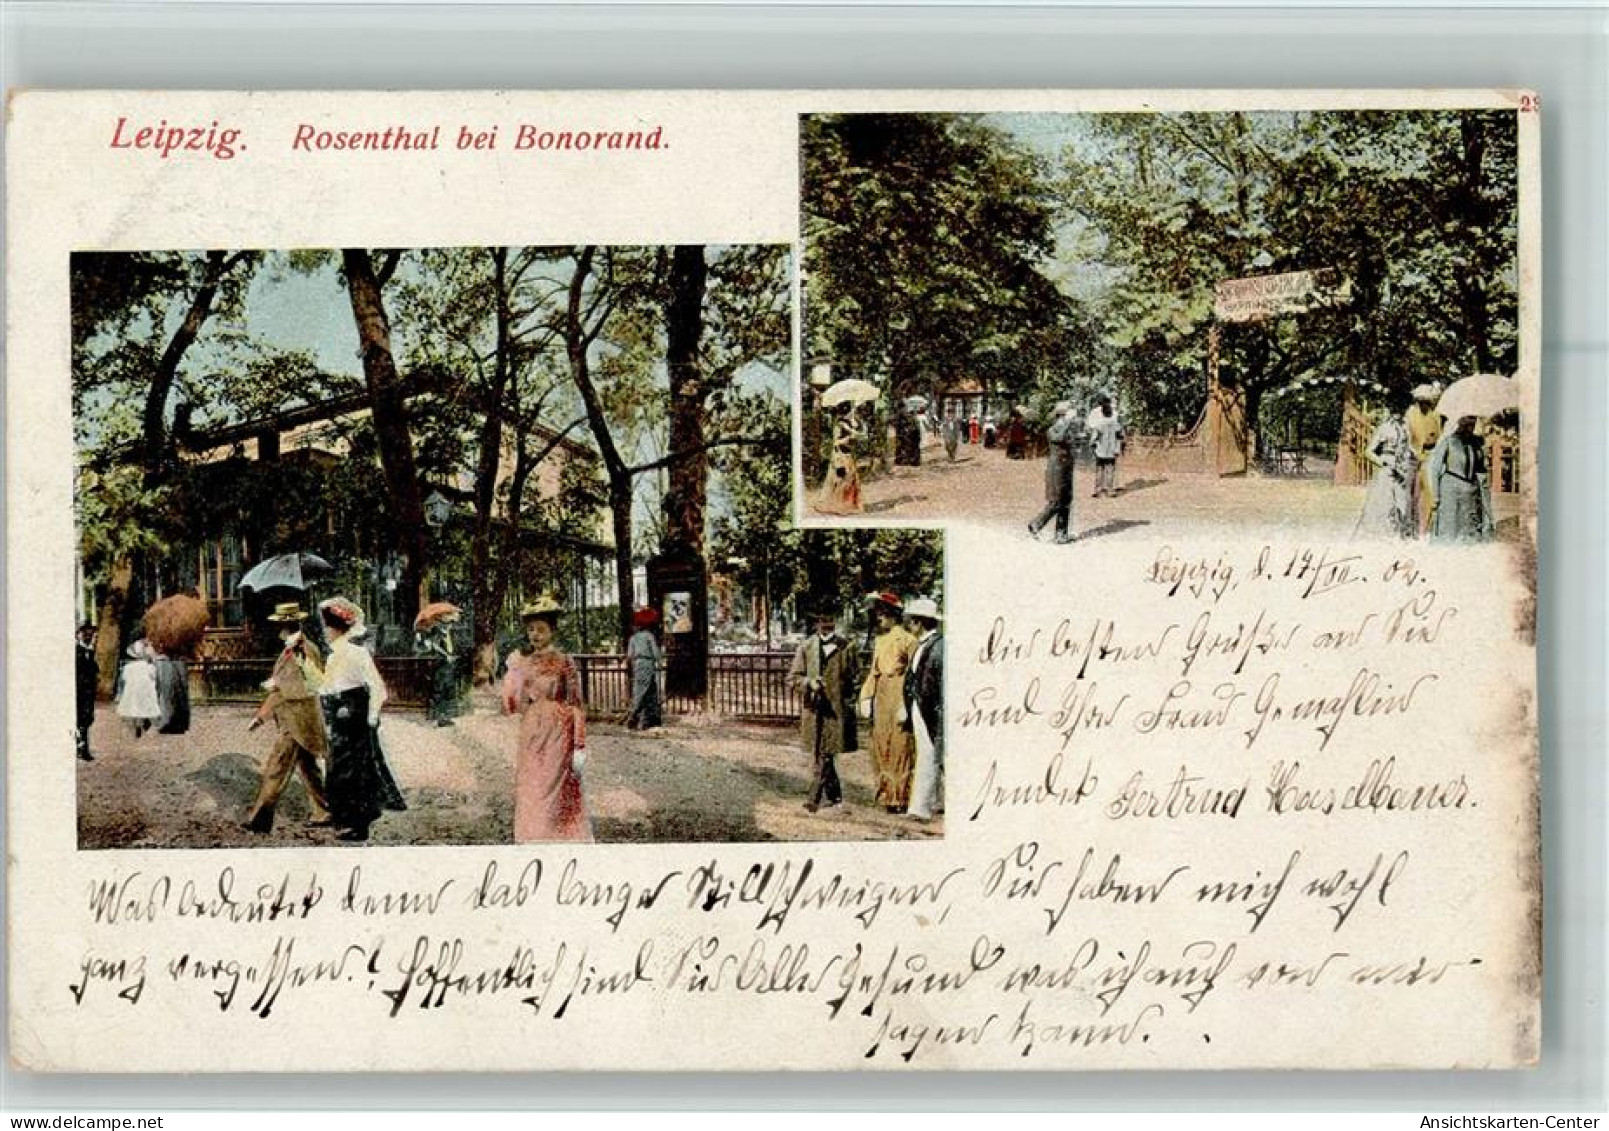 Leipzig. Rosenthal bei Bonorand.
28
BONORAND
Leipzig, d. 17/VII. 02.
Die besten Grüße an Sie
und Ihre Frau Gemahlin
sendet Gertrud Haselbauer.
Was bedeutet denn das lange Stillschweigen, Sie haben mich wohl
ganz vergessen.! Hoffentlich sind Sie Alle Gesund was ich auch von mir
sagen kann.
Ansichtskarten-Center